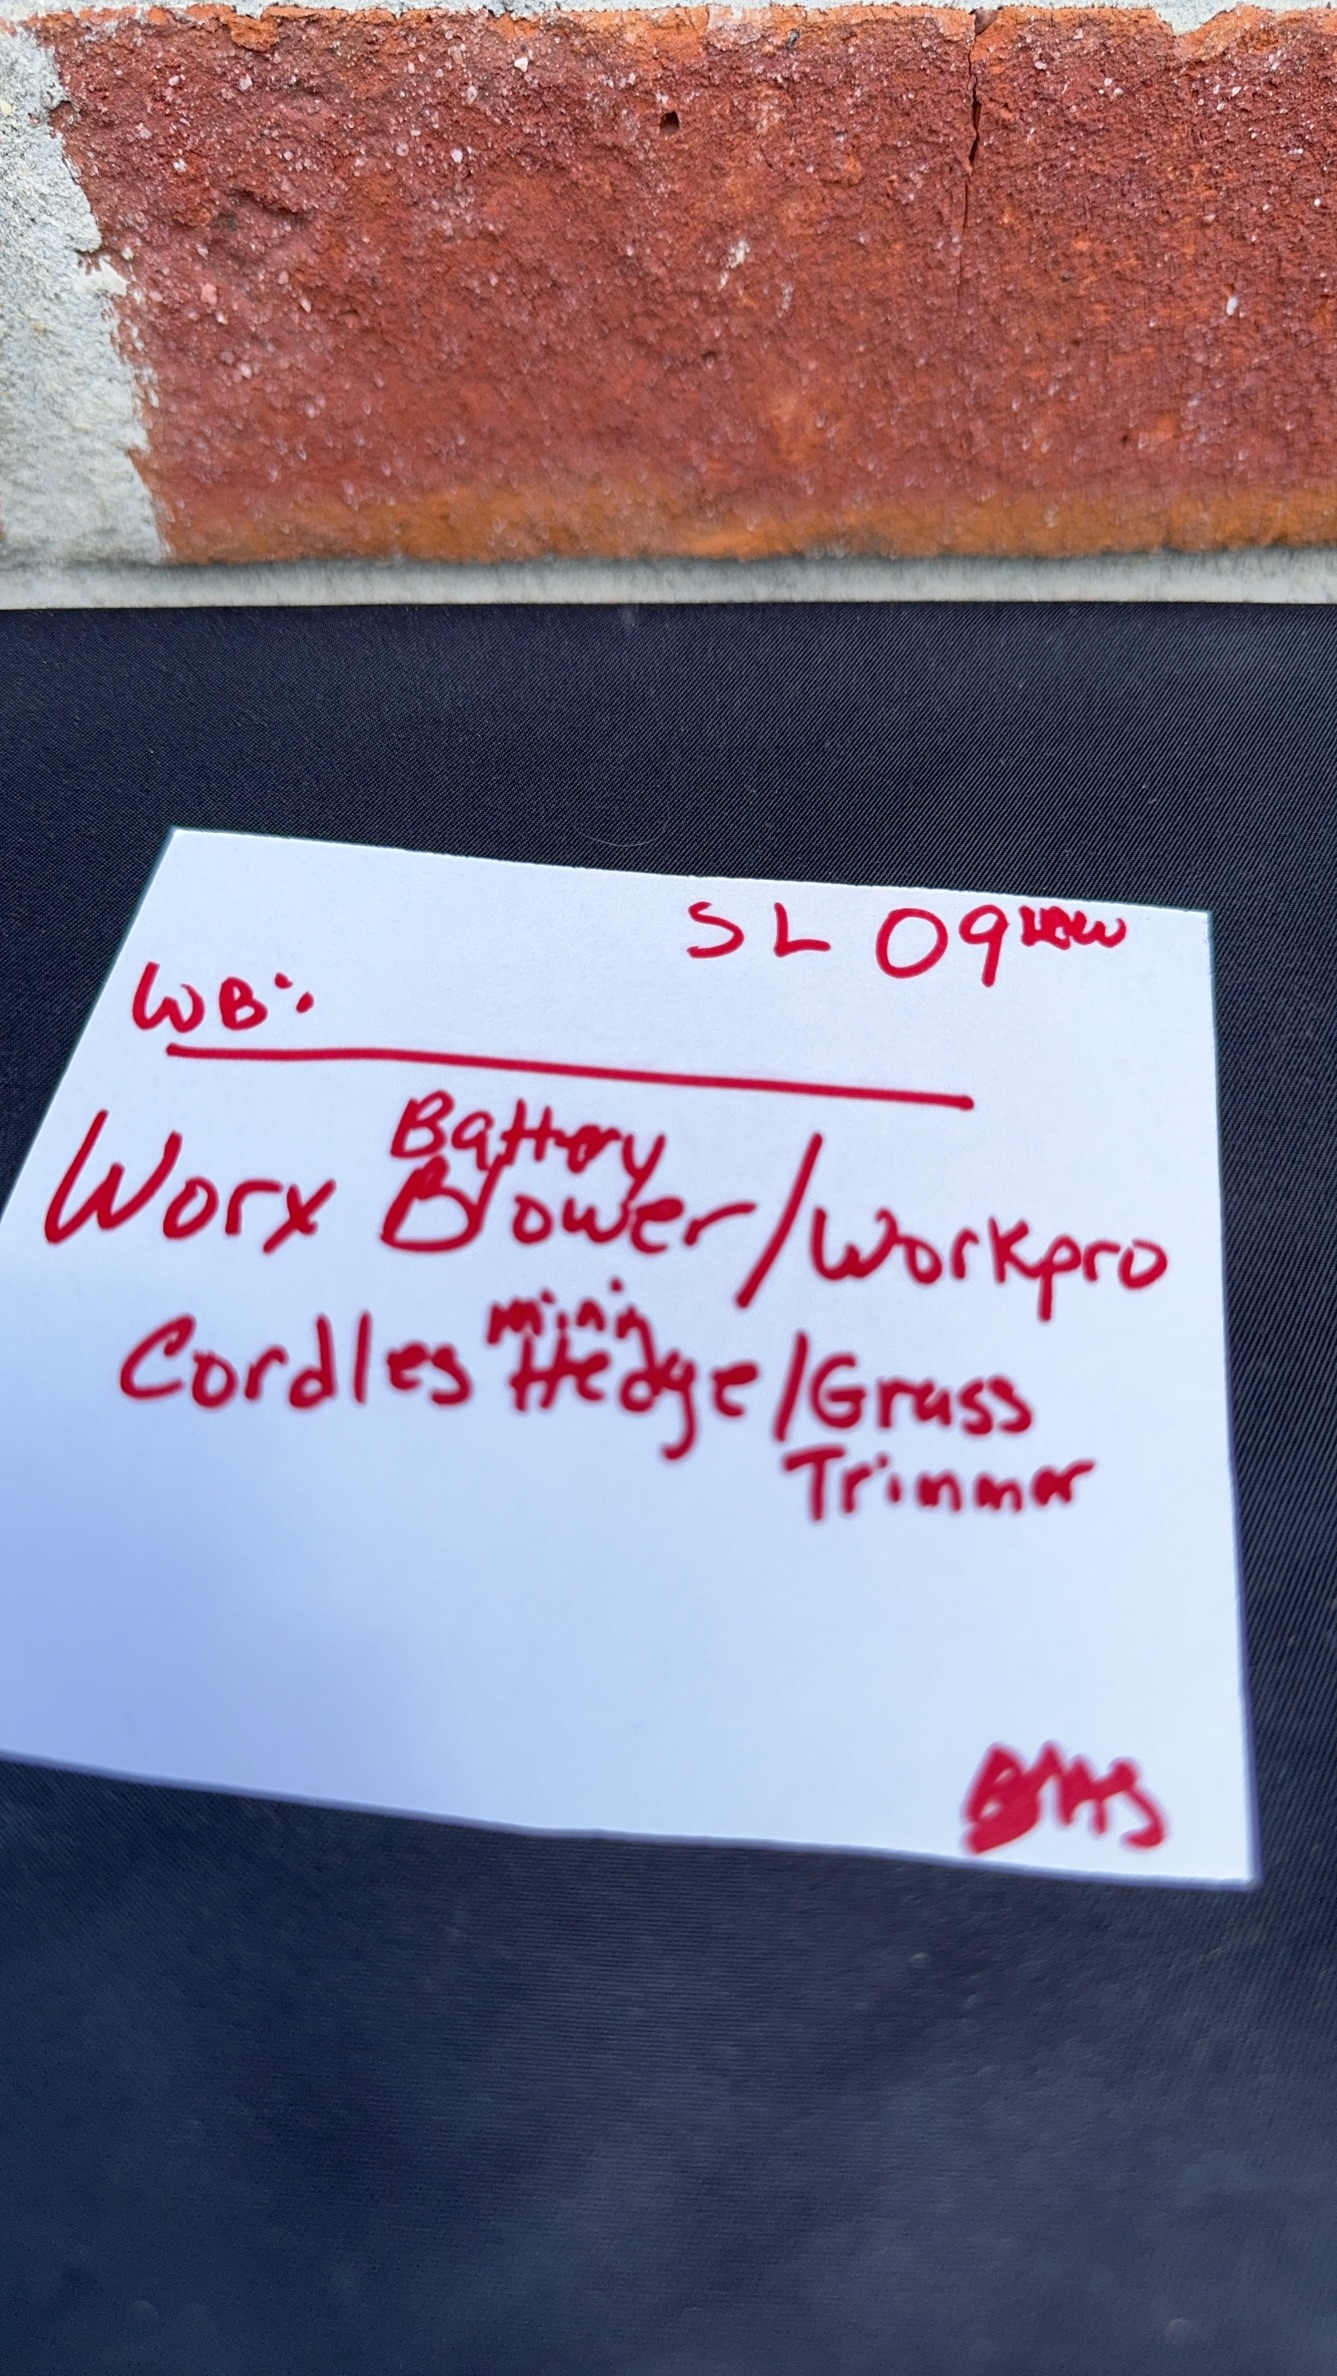 SL 09
WB:
Worx Battery Blower/Workpro
Cordles mini Hedge/Grass
Trimmer